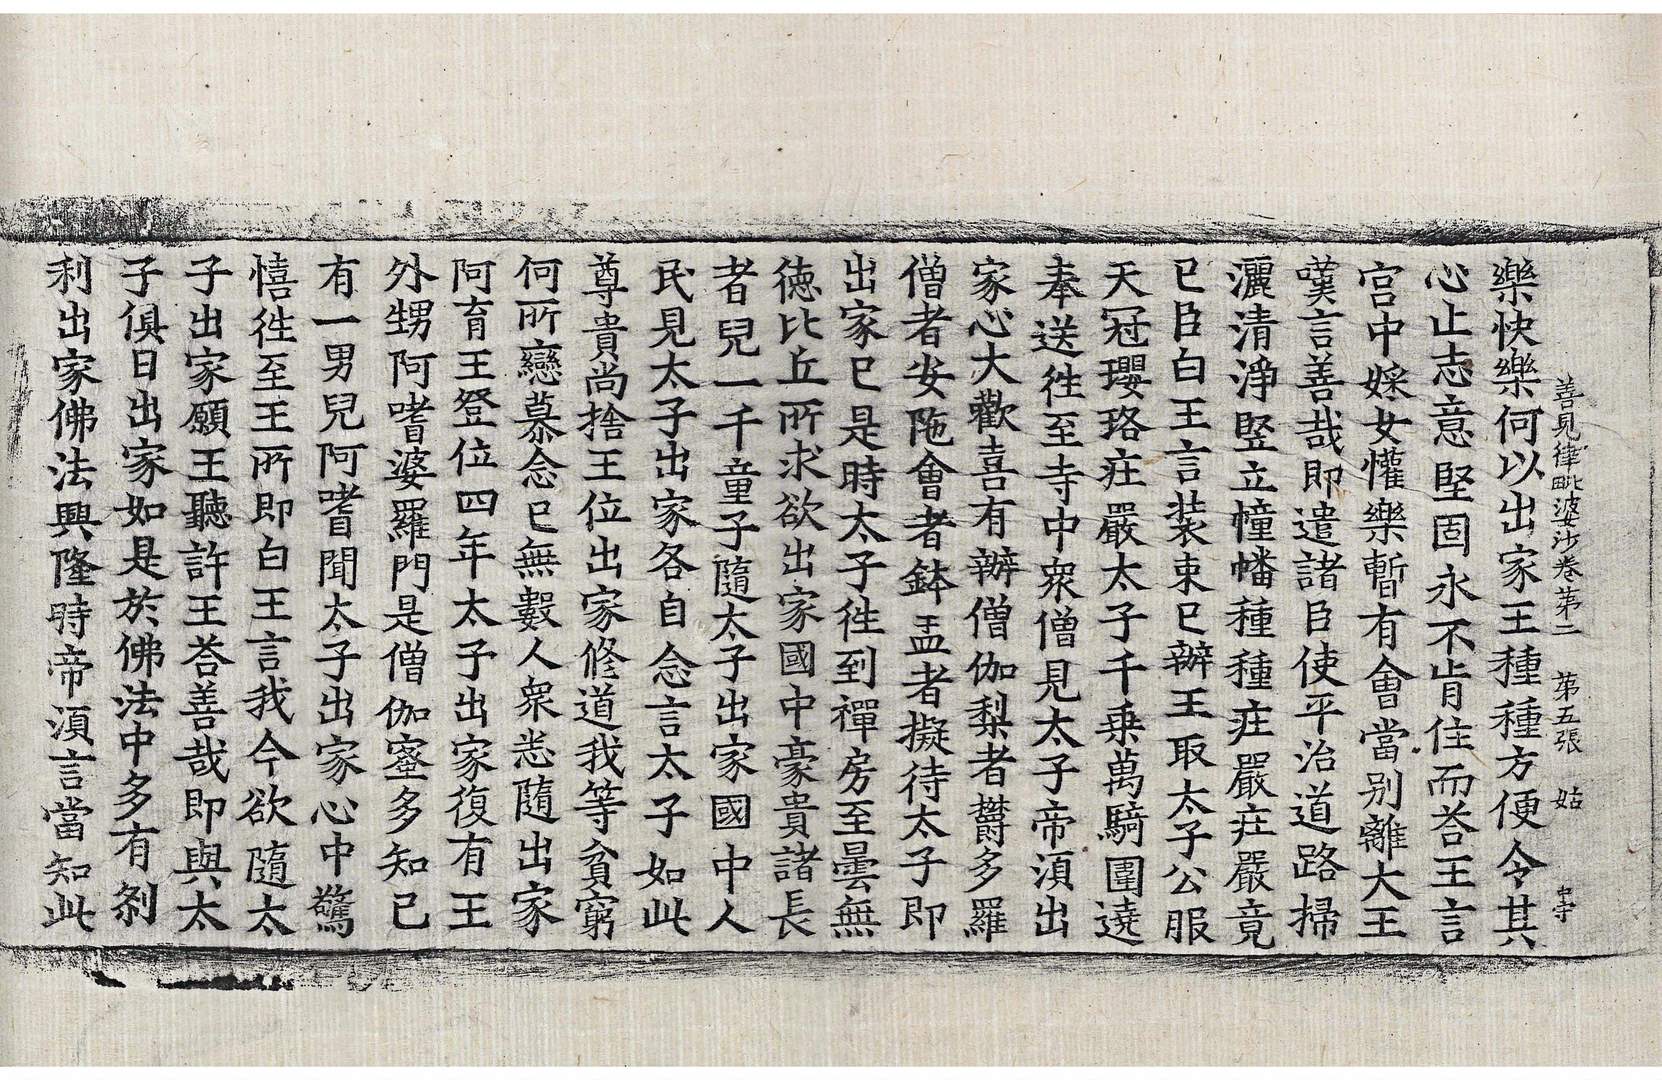 善見律毗婆沙卷第二 第五張 姑
樂快樂何以出家王種種方便令其
心止志意堅固永不肯住而荅王言
宮中婇女懽樂暫有會當別離大王
嘆言善哉即遣諸臣使平治道路掃
灑清淨竪立幢幡種種庄嚴庄嚴竟
已臣白王言裝束已辦王取太子公服
天冠瓔珞庄嚴太子千乗萬騎圍遶
奉送徃至寺中衆僧見太子帝湏出
家心大歡喜有辦僧伽梨者欝多羅
僧者安陁會者鉢盂者擬待太子即
出家已是時太子徃到禪房至曇無
徳比丘所求欲出家國中豪貴諸長
者兒一千童子隨太子出家國中人
民見太子出家各自念言太子如此
尊貴尚捨王位出家修道我等貧窮
何所戀慕念已無數人衆悉隨出家
阿育王登位四年太子出家復有王
外甥阿嗜婆羅門是僧伽蜜多知已
有一男兒阿嗜聞太子出家心中驚
憘徃至王所即白王言我今欲隨太
子出家願王聽許王荅善哉即與太
子俱日出家如是於佛法中多有剎
利出家佛法興隆時帝湏言當知此